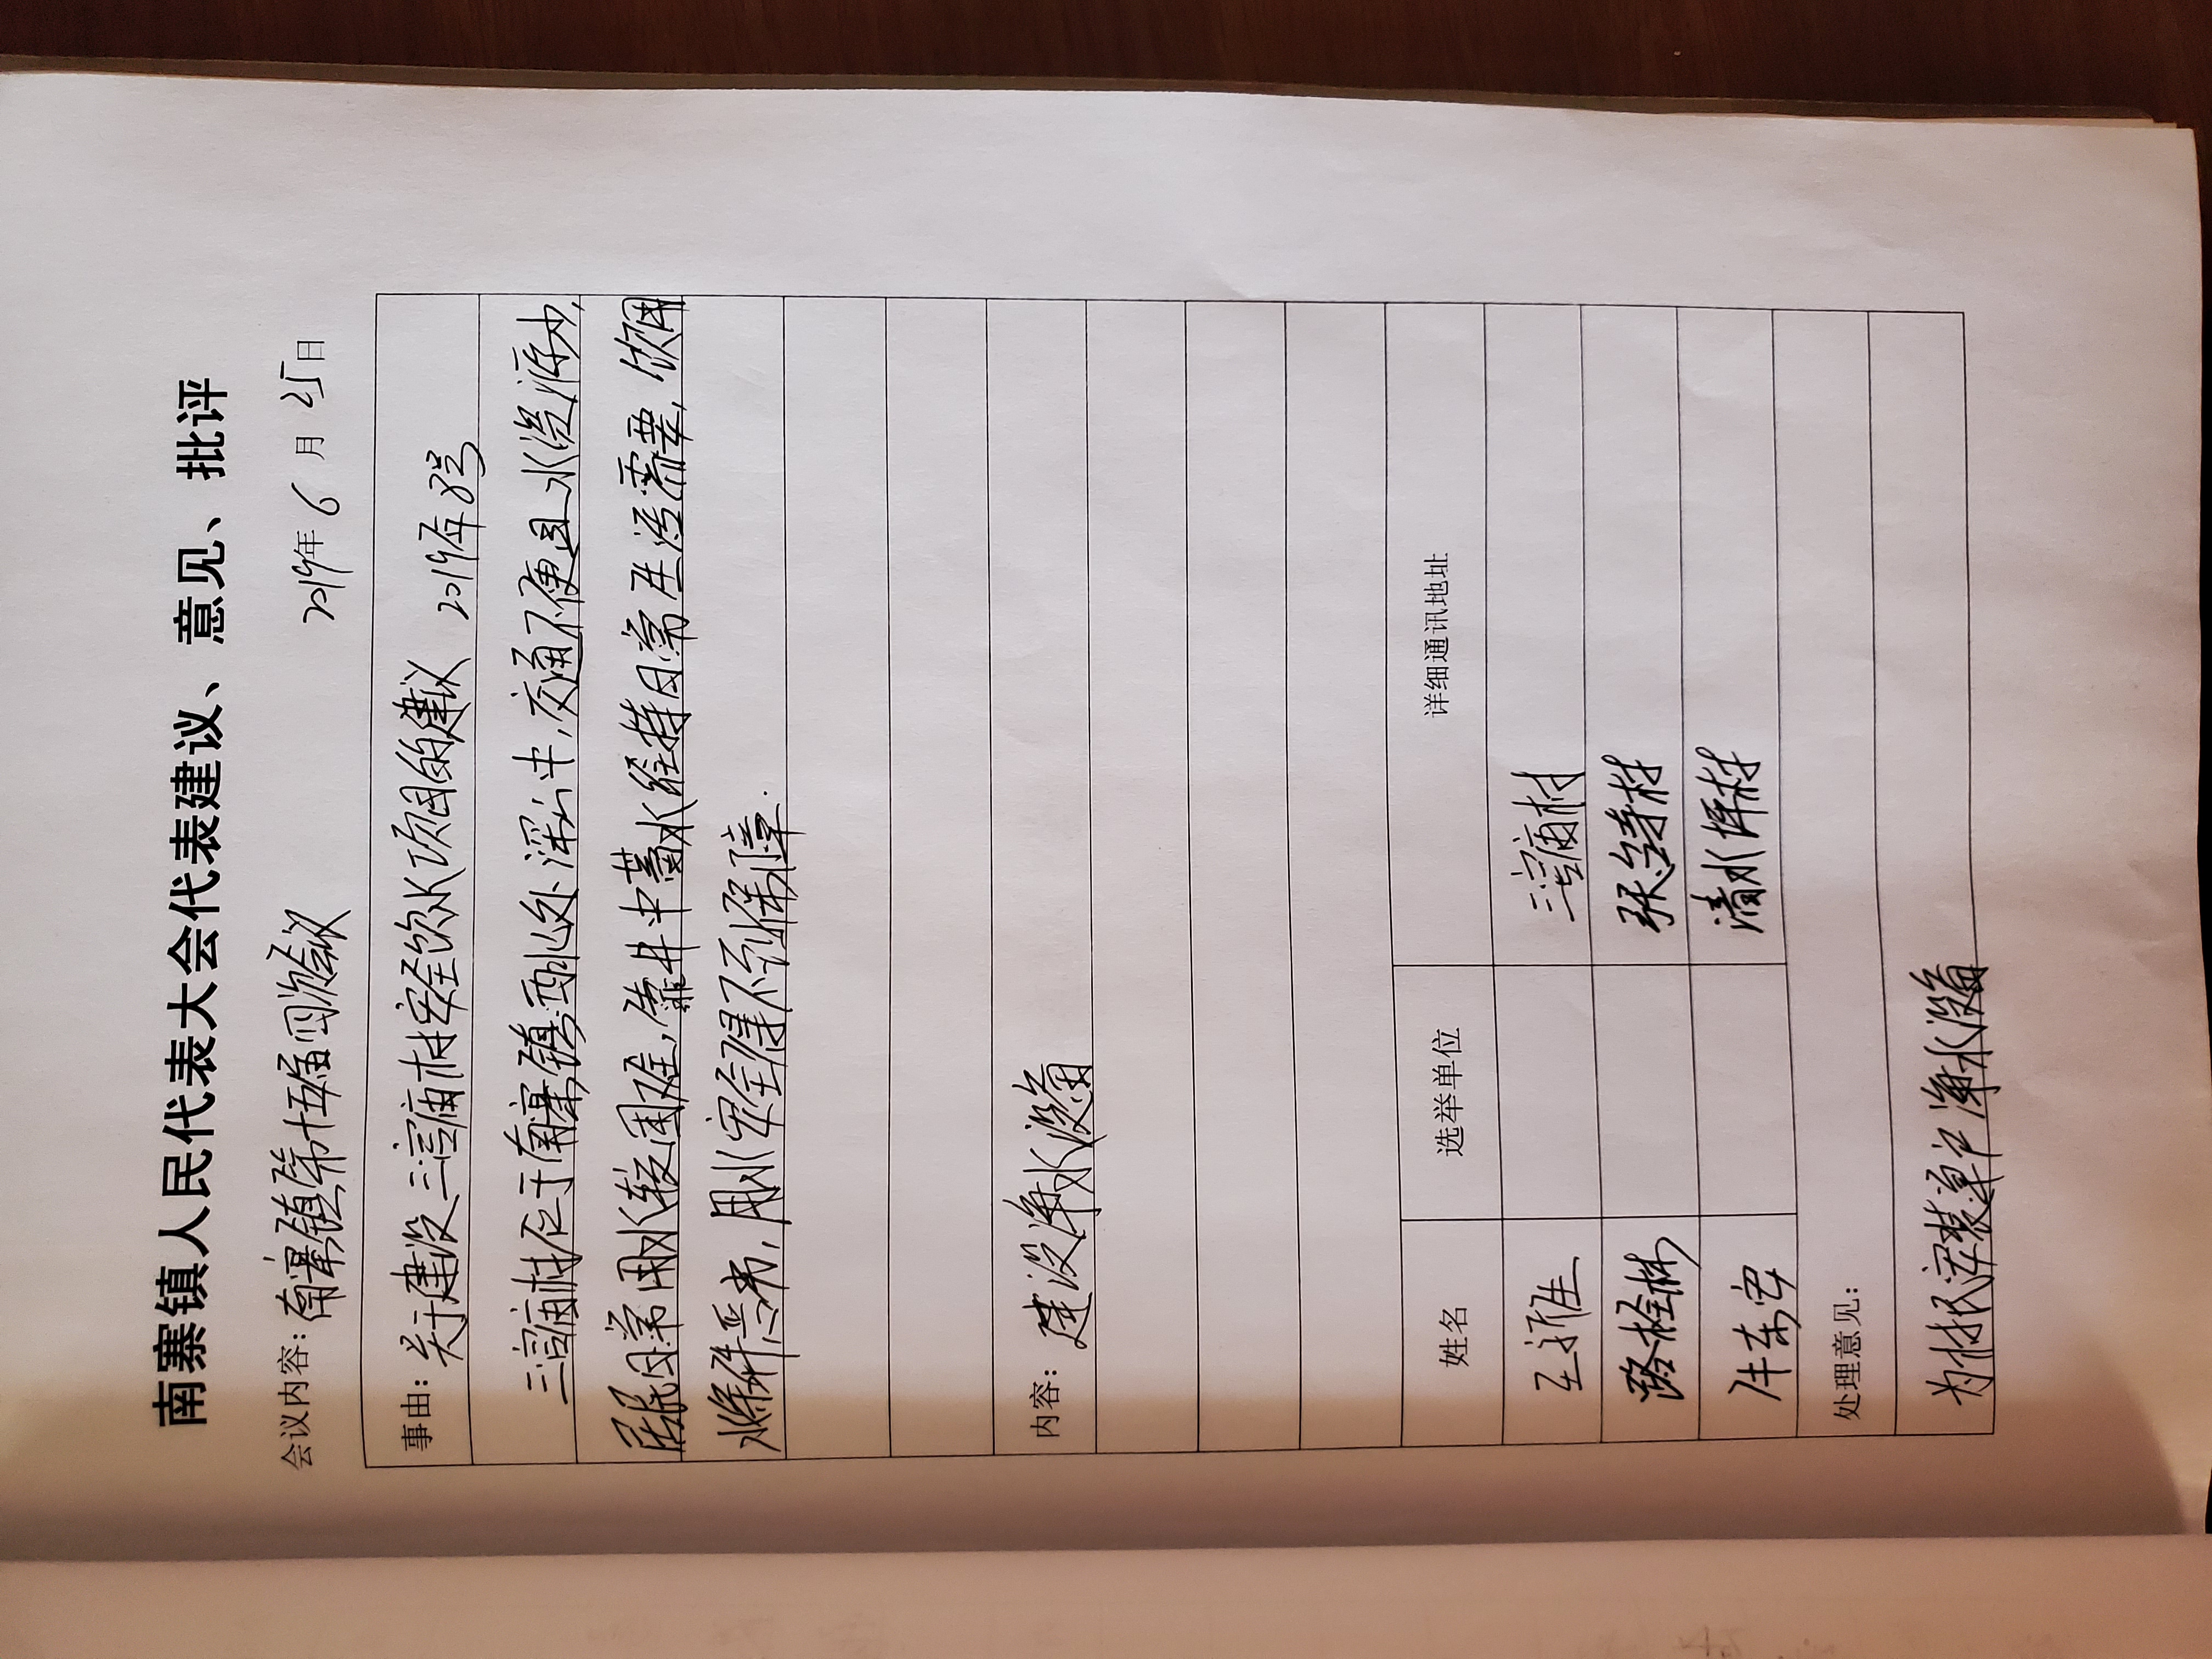 南寨镇人民代表大会代表建议、意见、批评
会议内容：南寨镇第十五届四次会议 2019年 6 月 25日
事由：关于建设三官庙村安全饮水项目的建议 2019年8号
三官庙村位于南寨镇西北处深山中,交通不便且水资源少,
居民日常用水较困难,靠井中蓄水维持日常生活需要,饮用
水条件恶劣,用水安全得不到保障.
内容：建设净水设备
姓名 选举单位 详细通讯地址
王雅 三官庙村
路栓林 张台寺村
牛东安 清水坪村
处理意见：
为村民安装单户净水设备